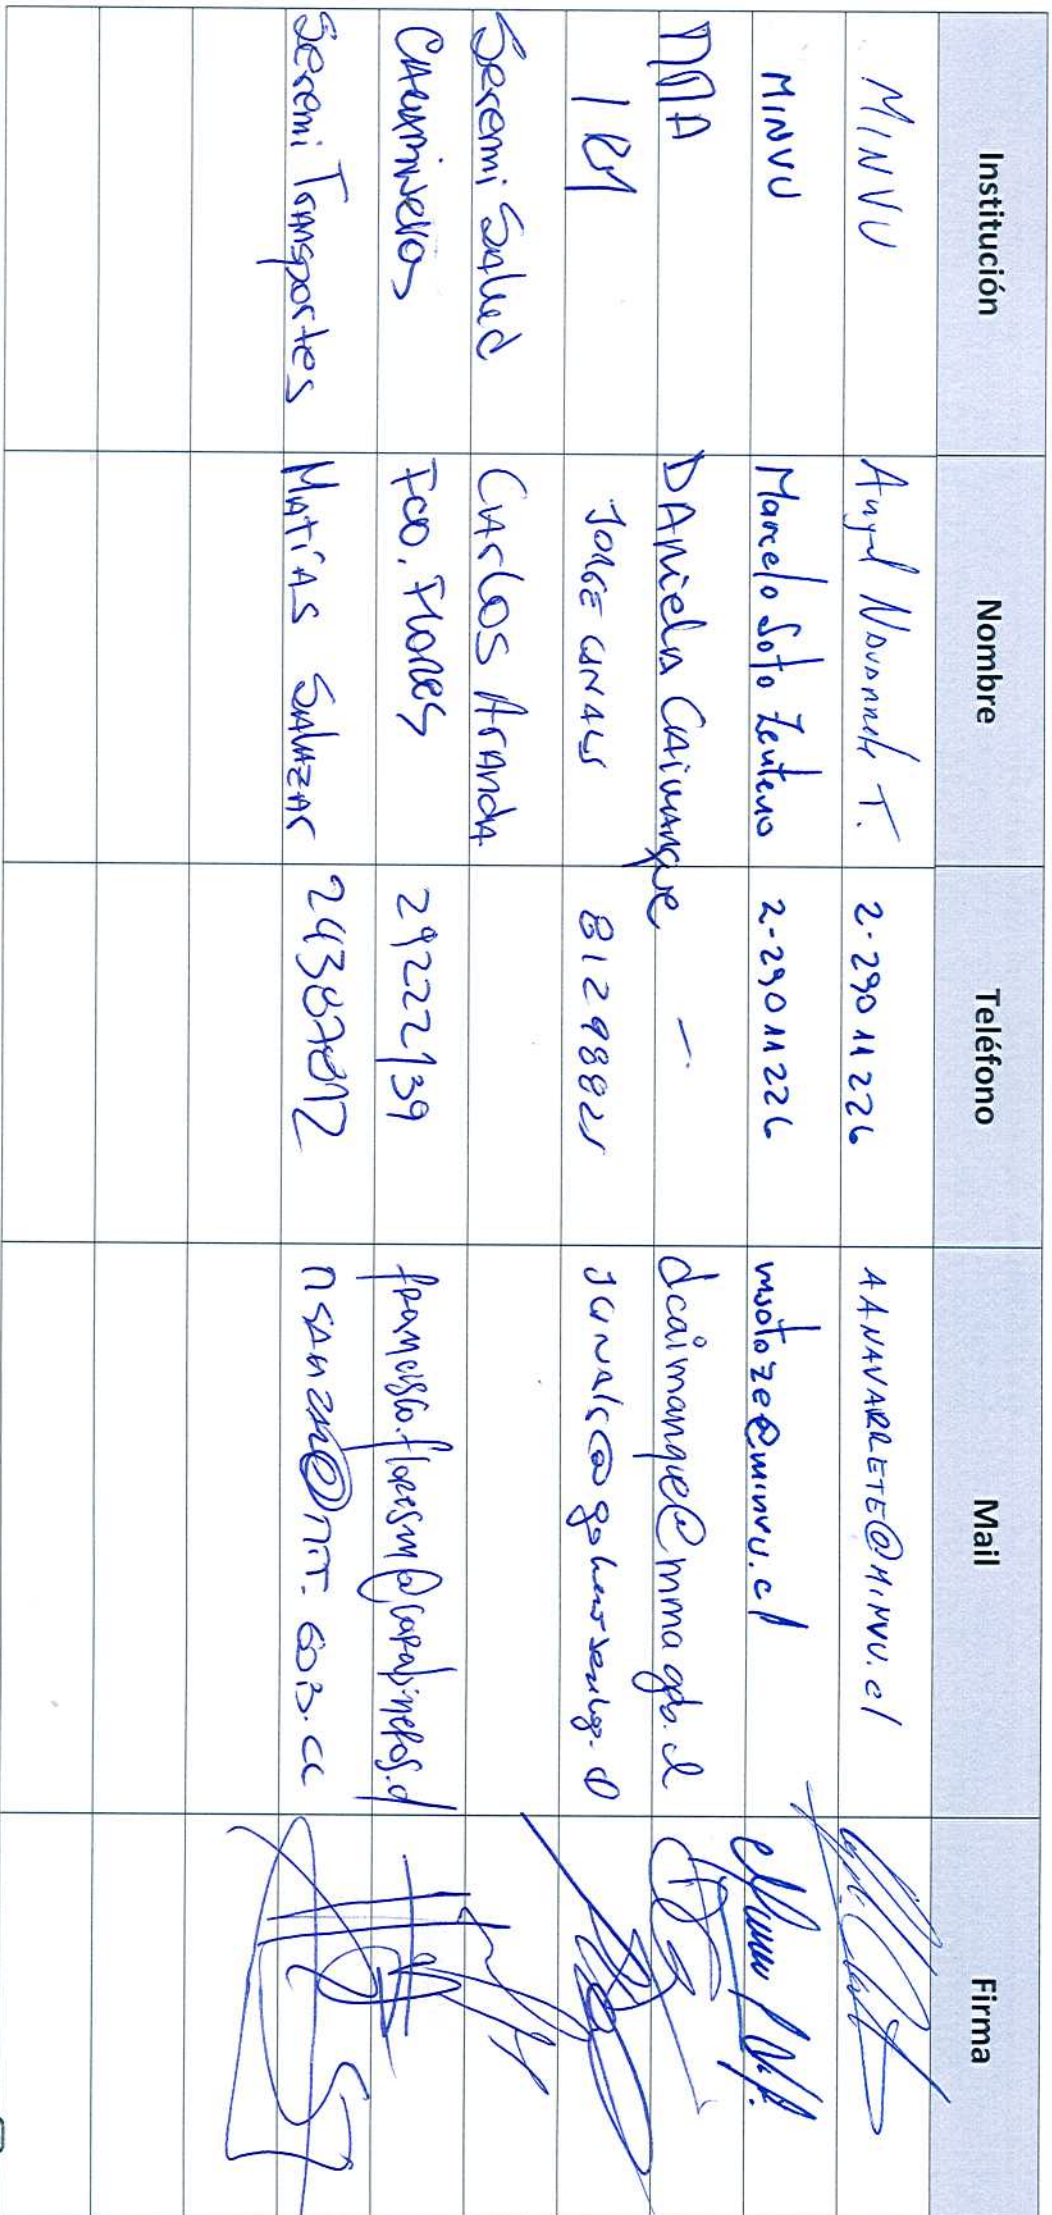 Institución Nombre Teléfono Mail Firma
MINVU Angel Navarrete T. 2-29011226 AANAVARRETE@MINVU.cl
MINVU Marcelo Soto Zenteno 2-29011226 msotoze@minvu.cl
MMA DAniela CAimanque - dcaimanque@mma.gob.cl
JORGE CANALS
Seremi Salud CArlos ArandA
Fco. Flores 29222139 francisco.floresm@carabineros.cl
Seremi Transportes MATÍAS SALAZAR